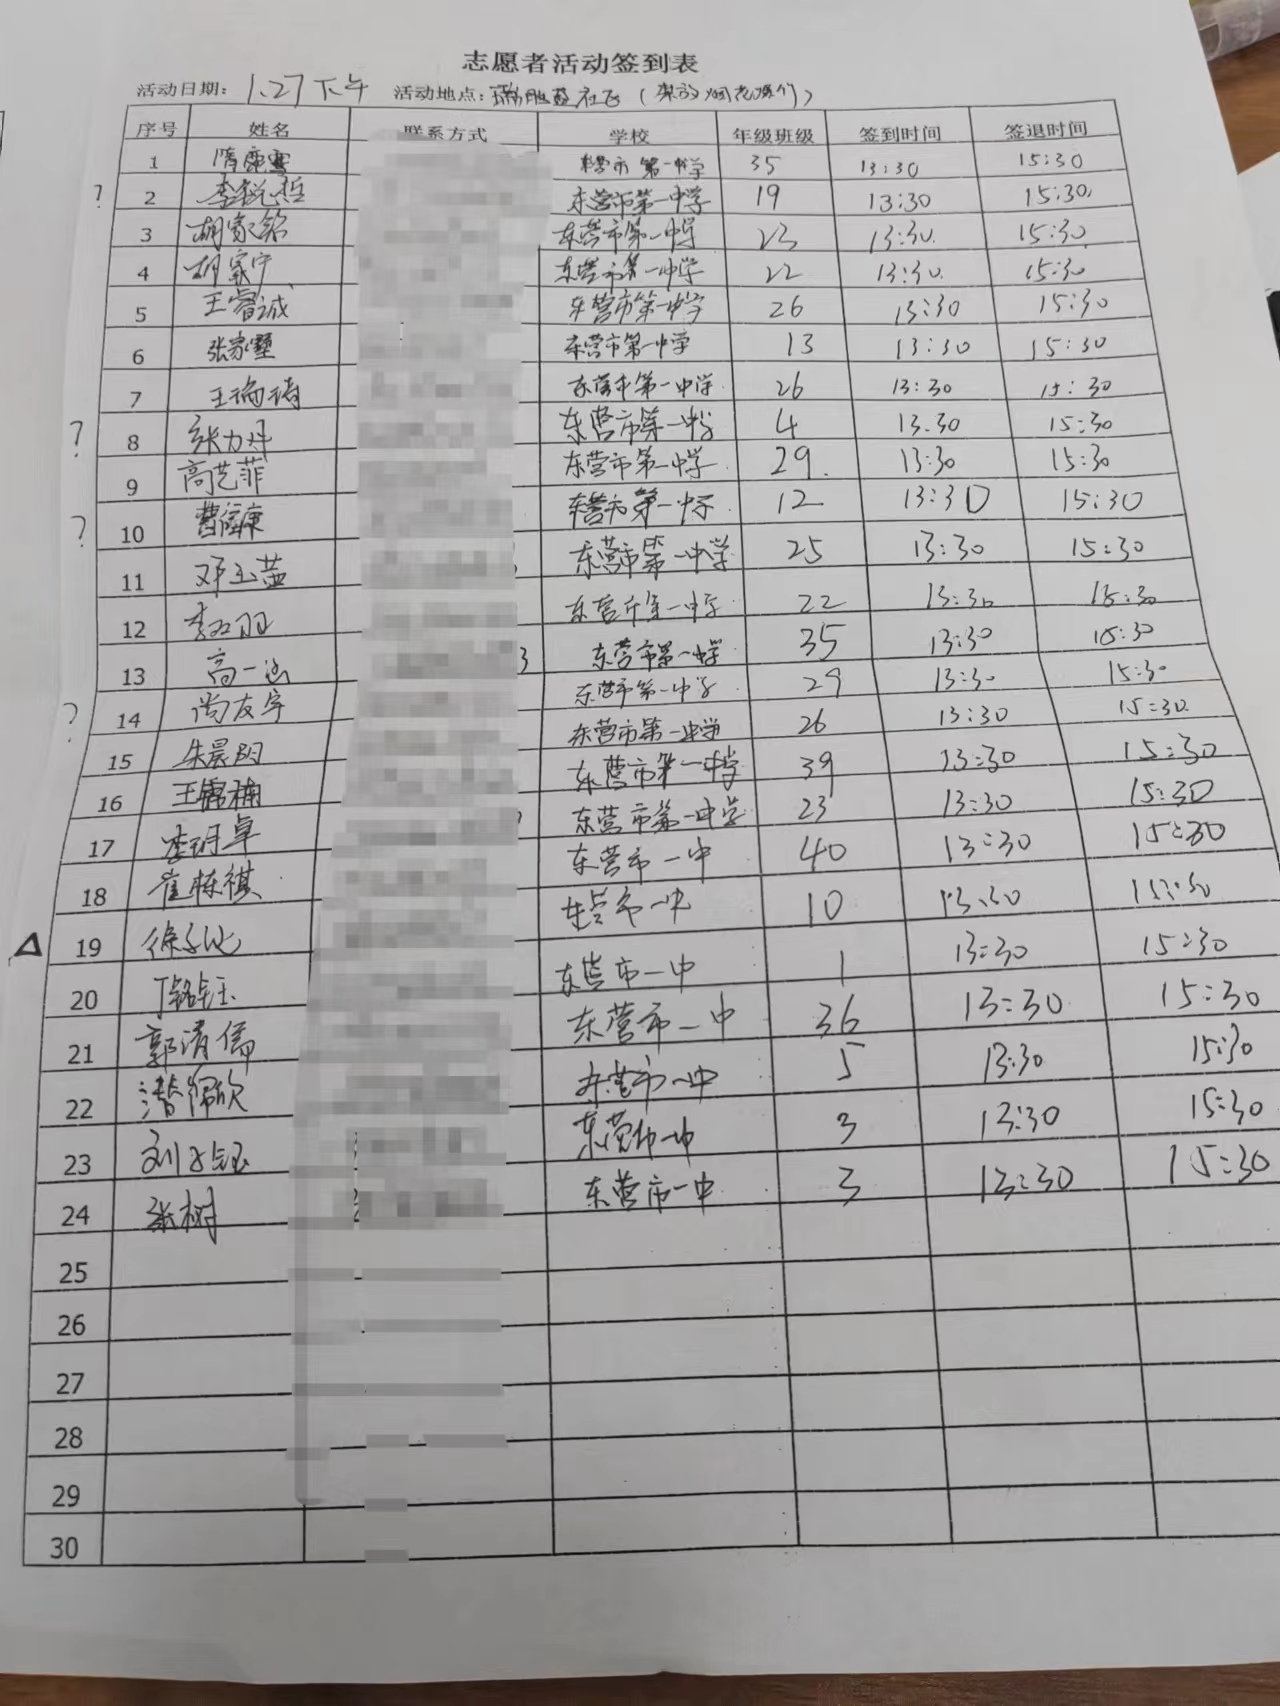 志愿者活动签到表
活动日期：1.27下午 活动地点：社区（禁放烟花
序号 姓名 联系方式 学校 年级班级 签到时间 签退时间
1 隋康 东营市第一中学 35 13:30 15:30
? 2 李锐哲 东营市第一中学 19 13:30 15:30
3 胡家铭 东营市第一中学 23 13:30 15:30
4 胡家宁 东营市第一中学 22 13:30 15:30
5 王睿诚 东营市第一中学 26 13:30 15:30
6 张家 东营市第一中学 13 13:30 15:30
7 王瑞琦 东营市第一中学 26 13:30 15:30
? 8 张力丹 东营市第一中学 4 13:30 15:30
9 高艺菲 东营市第一中学 29 13:30 15:30
? 10 曹 康 东营市第一中学 12 13:30 15:30
11 邓玉 东营市第一中学 25 13:30 15:30
12 李 羽 东营市第一中学 22 13:30 15:30
13 高一涵 3 东营市第一中学 35 13:30 15:30
? 14 尚友宇 东营市第一中学 29 13:30 15:30
15 朱晨阳 东营市第一中学 26 13:30 15:30
16 王锦楠 东营市第一中学 39 13:30 15:30
17 李玥卓 东营市第一中学 23 13:30 15:30
18 崔栋祺 东营市一中 40 13:30 15:30
Δ 19 徐子 东营市一中 10 13:30 15:30
20 丁铭钰 东营市一中 1 13:30 15:30
21 郭清儒 东营市一中 36 13:30 15:30
22 欣 东营市一中 5 13:30 15:30
23 刘子钰 东营市一中 3 13:30 15:30
24 张树 东营市一中 3 13:30 15:30
25
26
27
28
29
30